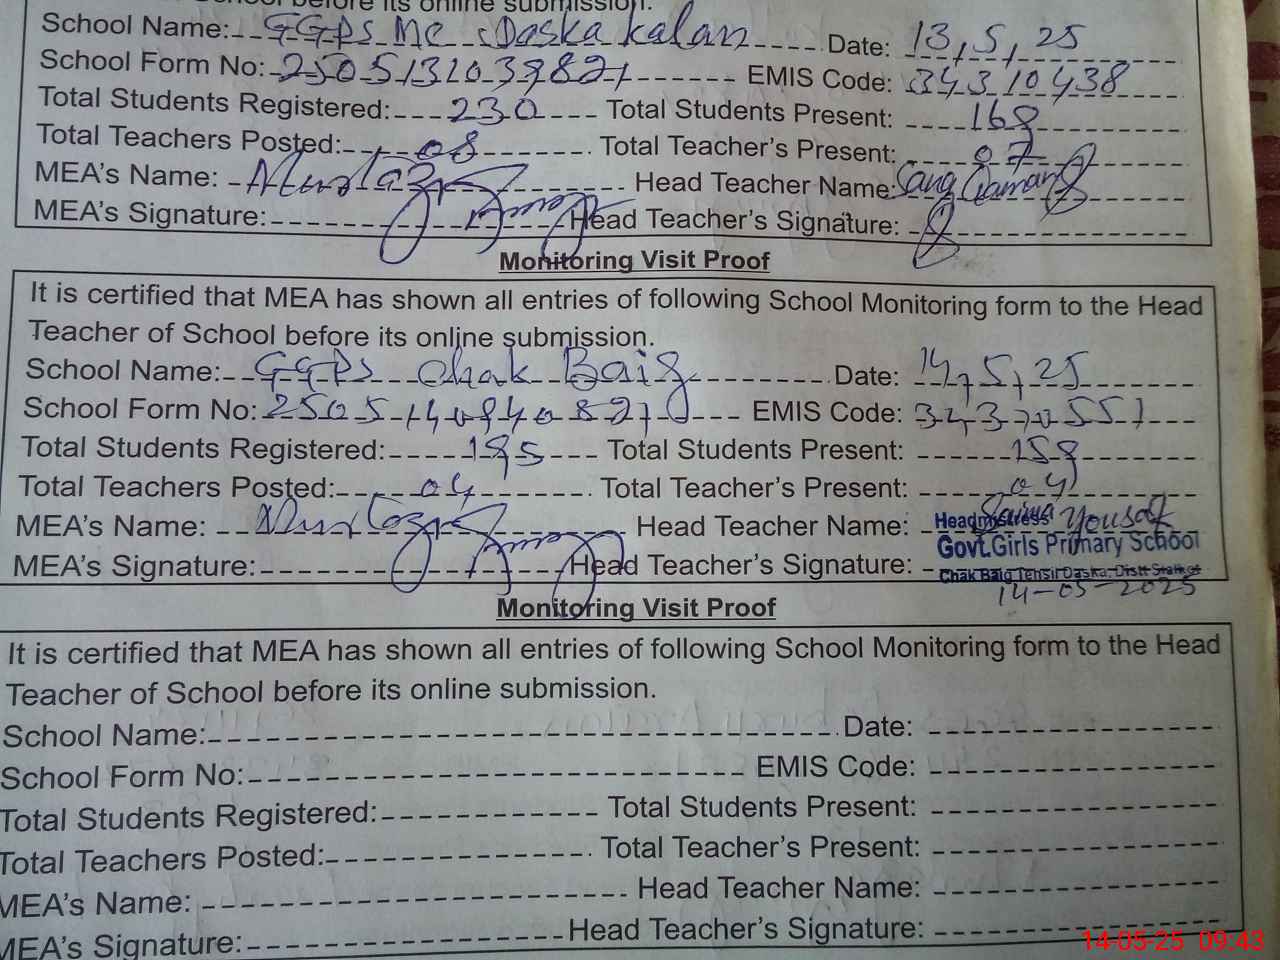 School before its online submission.
School Name: GGPS MC Daska Kalan Date: 13, 5, 25
School Form No: EMIS Code: 34310438
Total Students Registered: 230 Total Students Present: 168
Total Teachers Posted: 08 Total Teacher's Present: 07
MEA's Name: Head Teacher Name:
MEA's Signature: Head Teacher's Signature:
Monitoring Visit Proof
It is certified that MEA has shown all entries of following School Monitoring form to the Head
Teacher of School before its online submission.
School Name: GGPS Chak Baig Date: 14, 5, 25
School Form No: EMIS Code: 34370557
Total Students Registered: 195 Total Students Present: 158
Total Teachers Posted: 04 Total Teacher's Present: 04
MEA's Name: Head Teacher Name: Saima Yousaf
Headmistress
Govt.Girls Primary School
MEA's Signature: Head Teacher's Signature:
Chak Baig Tehsil Daska. Distt Sialkot
14-05-2025
Monitoring Visit Proof
It is certified that MEA has shown all entries of following School Monitoring form to the Head
Teacher of School before its online submission.
School Name: Date:
School Form No: EMIS Code:
Total Students Registered: Total Students Present:
Total Teachers Posted: Total Teacher's Present:
MEA's Name: Head Teacher Name:
MEA's Signature: Head Teacher's Signature:
14-05-25 09:43